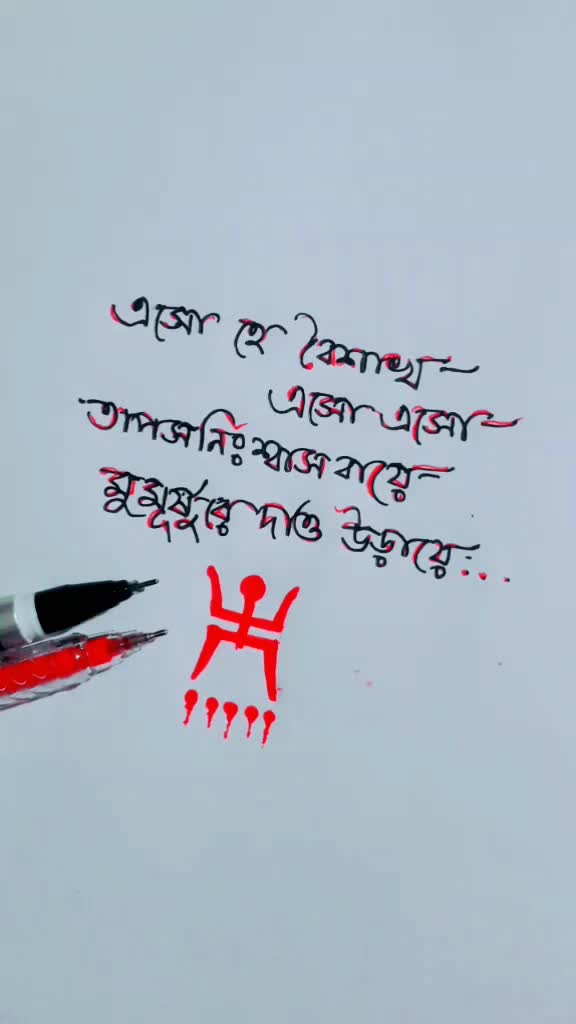 এসো হে বৈশাখ-
এসো এসো-
তাপসনিঃশ্বাসবায়ে-
মুমূর্ষুরে দাও উড়ায়ে...